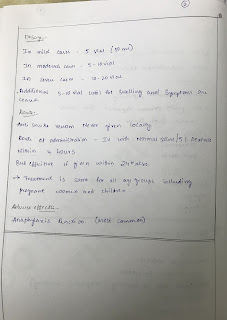 ②
Dosage:-
In mild cases - 5 Vial (50 ml)
In moderate cases - 5-10 vial
In severe cases - 10-20 vial
Additional 5-10 vial until for swelling and symptoms are
ceased
Route:-
Anti snake venom never given locally
Route of administration - IV with normal saline / 5%
within 4 hours
But effective if given within 24 hrs.
→ Treatment is same for all age groups including
pregnant women and children
Adverse effects:-
Anaphylaxis reaction (most common)